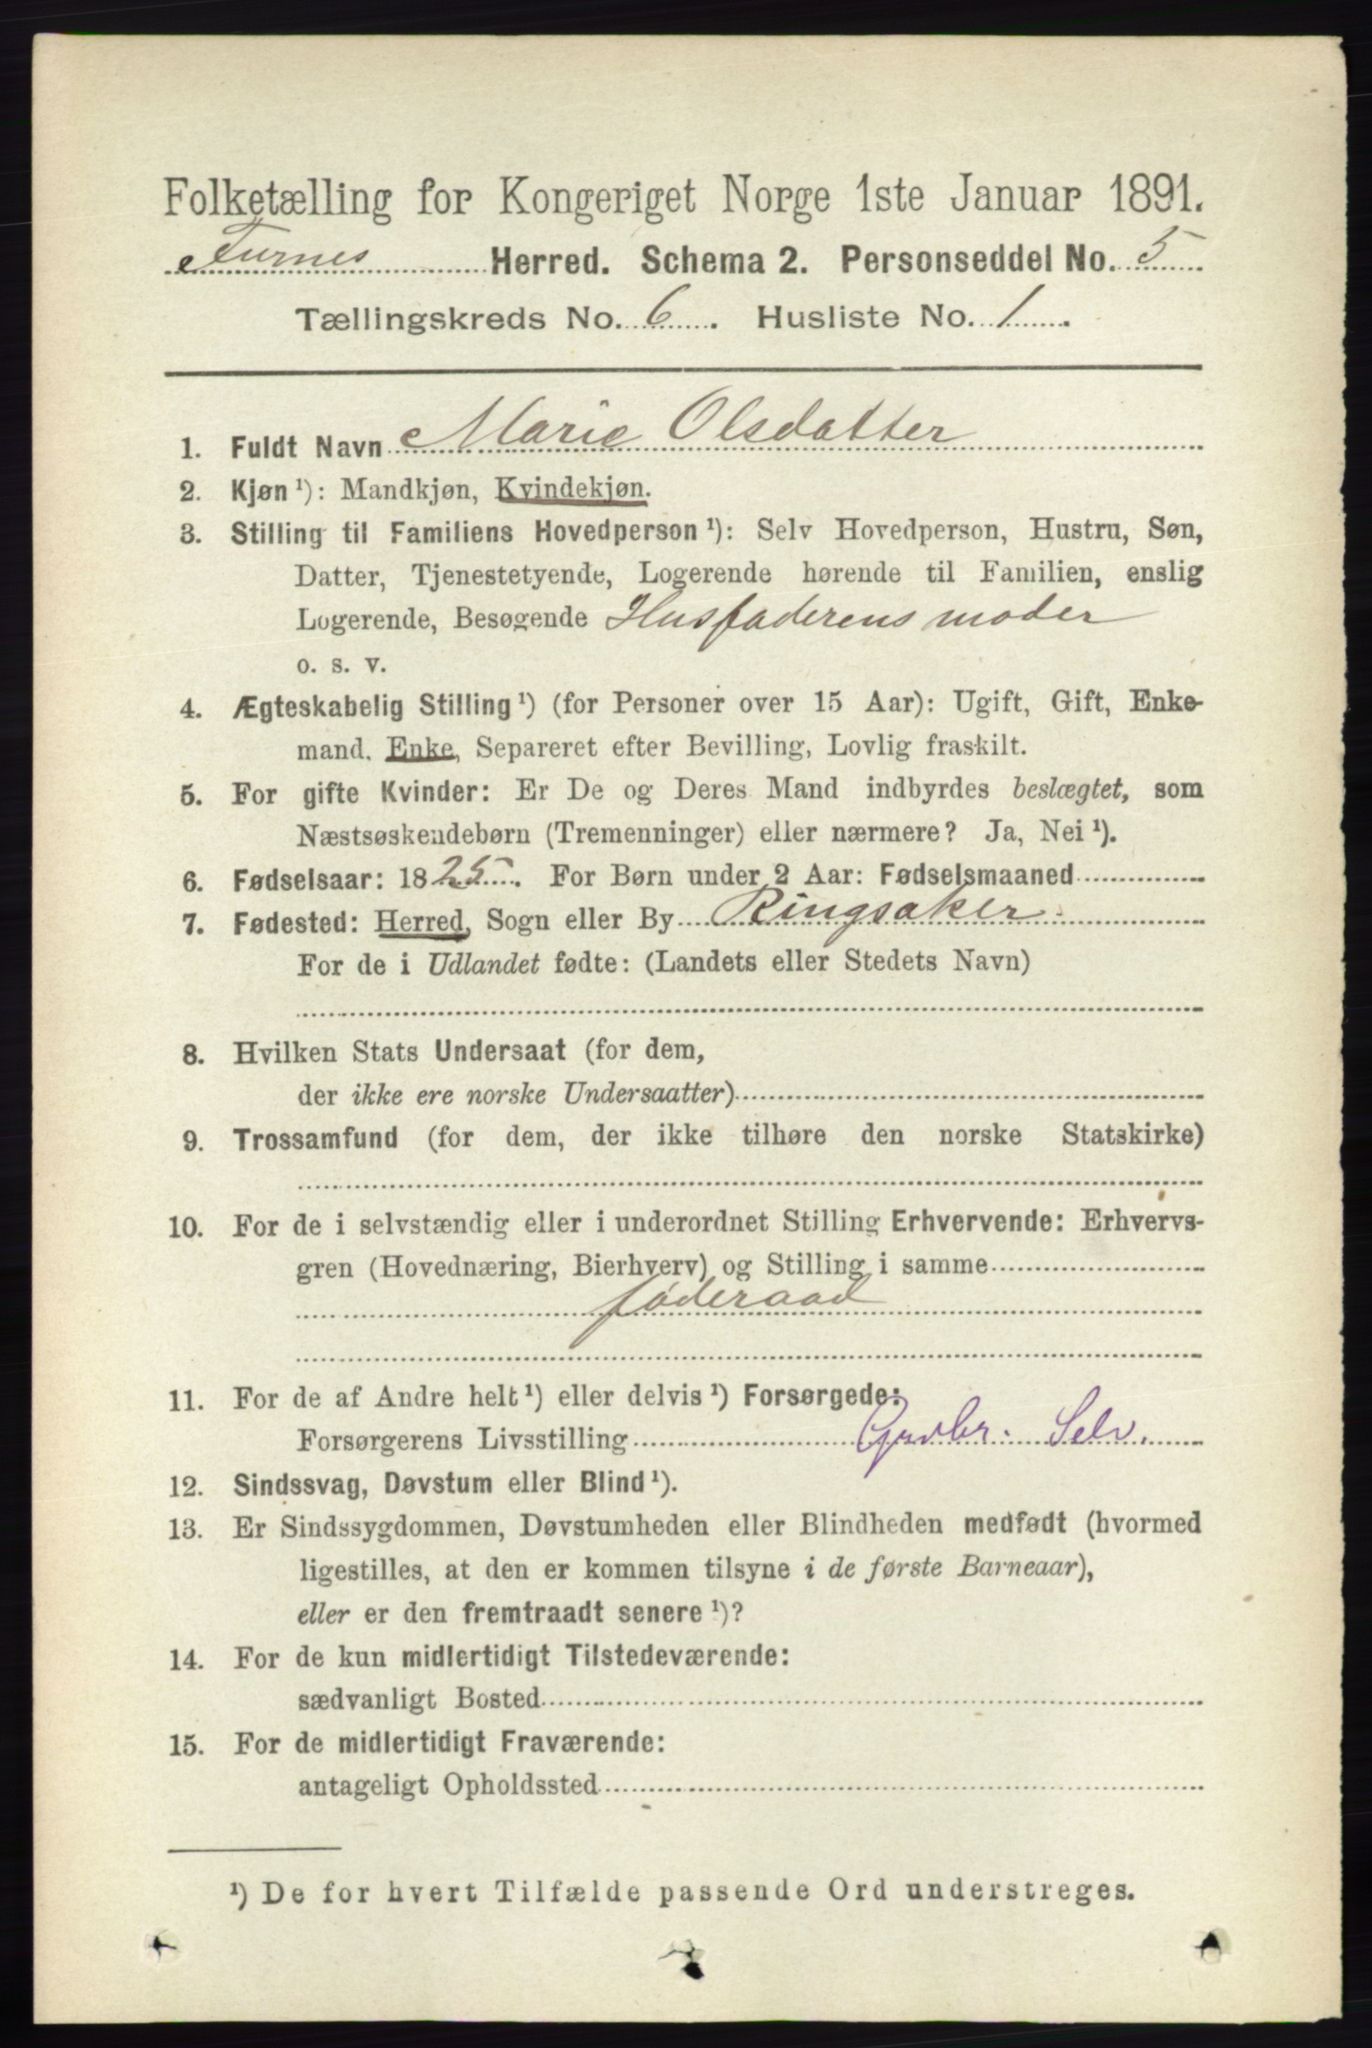 Folketælling for Kongeriget Norge 1ste Januar 1891.
Furnes Herred. Schema 2. Personseddel No. 5
Tællingskreds No. 6. Husliste No. 1.
1. Fuldt Navn Marie Olsdatter
2. Kjøn ¹): Mandkjøn, Kvindekjøn.
3. Stilling til Familiens Hovedperson ¹): Selv Hovedperson, Hustru, Søn,
Datter, Tjenestetyende, Logerende hørende til Familien, enslig
Logerende, Besøgende Husfaderens moder
o. s. v.
4. Ægteskabelig Stilling ¹) (for Personer over 15 Aar): Ugift, Gift, Enke-
mand, Enke, Separeret efter Bevilling, Lovlig fraskilt.
5. For gifte Kvinder: Er De og Deres Mand indbyrdes beslægtet, som
Næstsøskendebørn (Tremenninger) eller nærmere? Ja, Nei ¹).
6. Fødselsaar: 1825. For Børn under 2 Aar: Fødselsmaaned
7. Fødested: Herred, Sogn eller By Ringsaker
For de i Udlandet fødte: (Landets eller Stedets Navn)
8. Hvilken Stats Undersaat (for dem,
der ikke ere norske Undersaatter)
9. Trossamfund (for dem, der ikke tilhøre den norske Statskirke)
10. For de i selvstændig eller i underordnet Stilling Erhvervende: Erhvervs-
gren (Hovednæring, Bierhverv) og Stilling i samme
føderaad
11. For de af Andre helt ¹) eller delvis ¹) Forsørgede:
Forsørgerens Livsstilling Grdbr. Selv.
12. Sindssvag, Døvstum eller Blind ¹).
13. Er Sindssygdommen, Døvstumheden eller Blindheden medfødt (hvormed
ligestilles, at den er kommen tilsyne i de første Barneaar),
eller er den fremtraadt senere ¹)?
14. For de kun midlertidigt Tilstedeværende:
sædvanligt Bosted
15. For de midlertidigt Fraværende:
antageligt Opholdssted
¹) De for hvert Tilfælde passende Ord understreges.